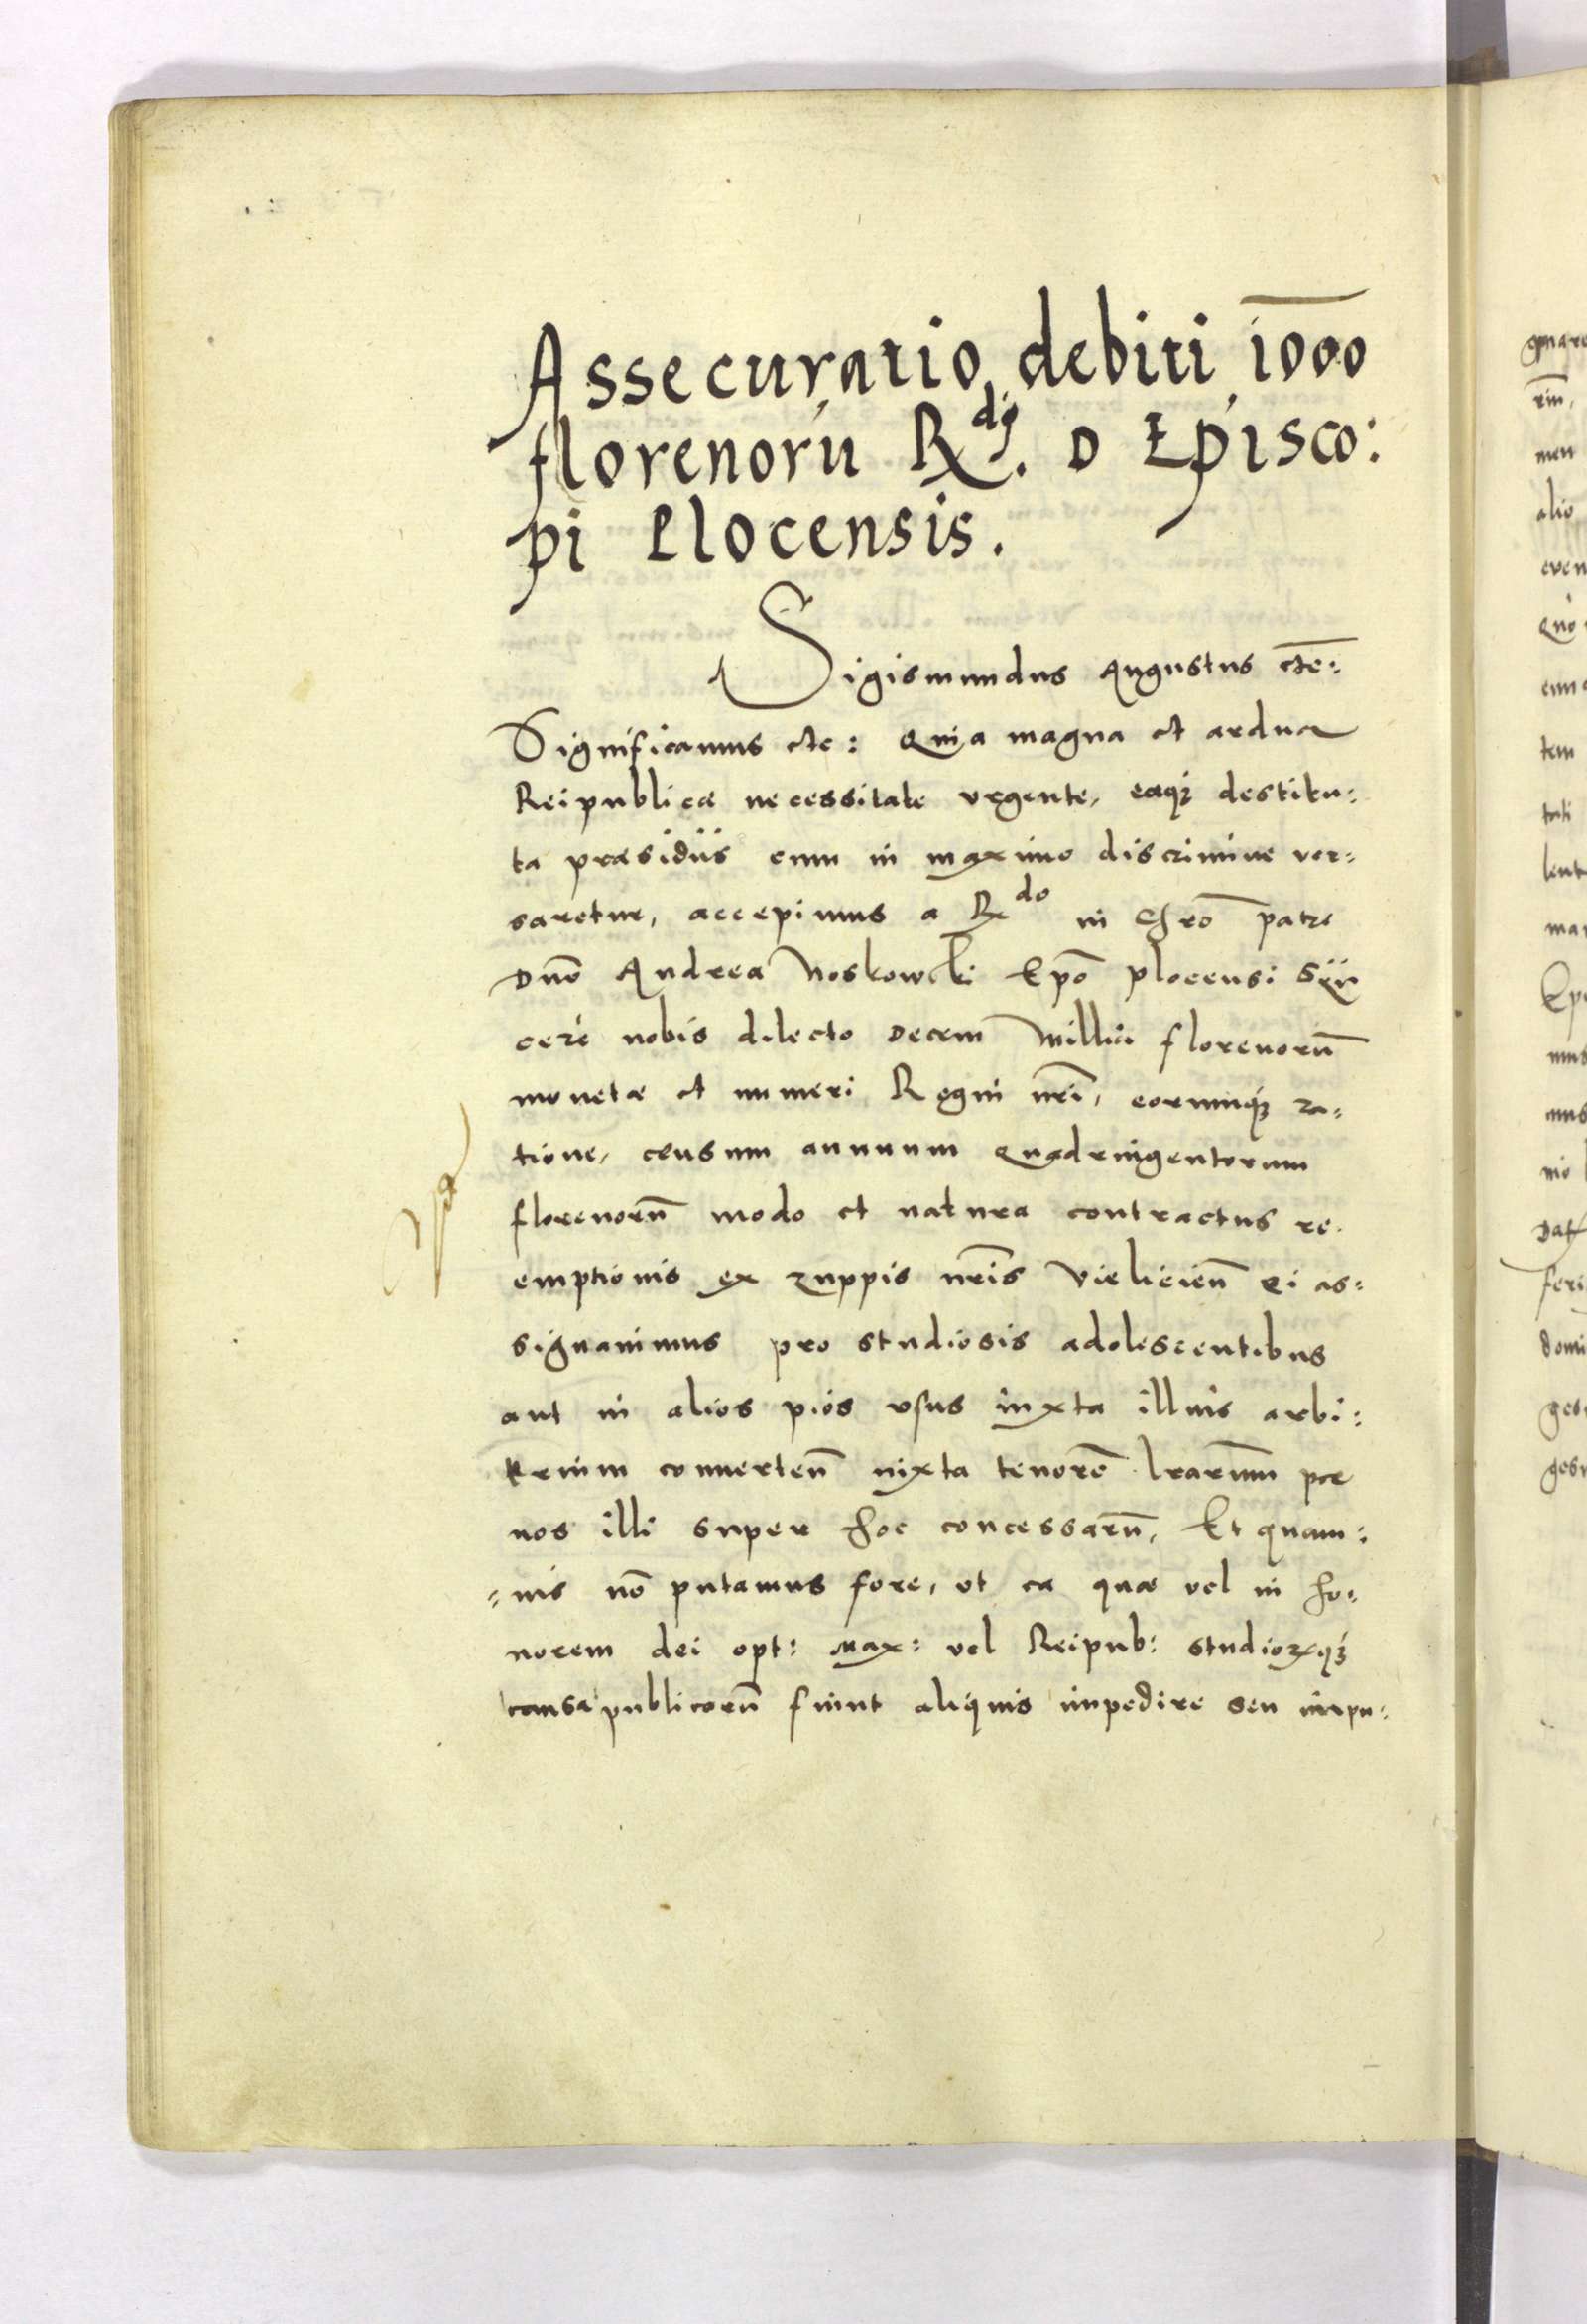 Assecuratio debiti 1000
florenorũ R^dj. D Episco:
pi Plocensis.
Sigismundus Augustus etc:
Significamus etc: Quia magna et ardua
Reipublicæ necessitate urgente, eaq3 destitu:
ta præsidiis cum in maximo discrimine ver:
saretur, accepimus a R^do in Chrō patre
Dnō Andrea Noskowski Epō plocensi Syn
cere nobis dilecto Decem Millia florenorũ
monetæ et numeri Regni nrī, eorumq3 ra:
tione, censum annuum Quadringentorum
florenorũ modo et natura contractus re
emptionis ex zuppis nrīs Vieliciēn Ei as:
signavimus pro studiosis adolescentibus
aut in alios pios usus iuxta illius arbi:
trium convertēn iuxta tenorē lrarum per
nos illi super hoc concessarũ, Et quam:
:vis nō putamus fore, ut ea quæ vel in ho:
norem dei opt: Max: vel Reipub: studiorꝝq3
causa publicorũ fiunt aliquis impedire seu impu: